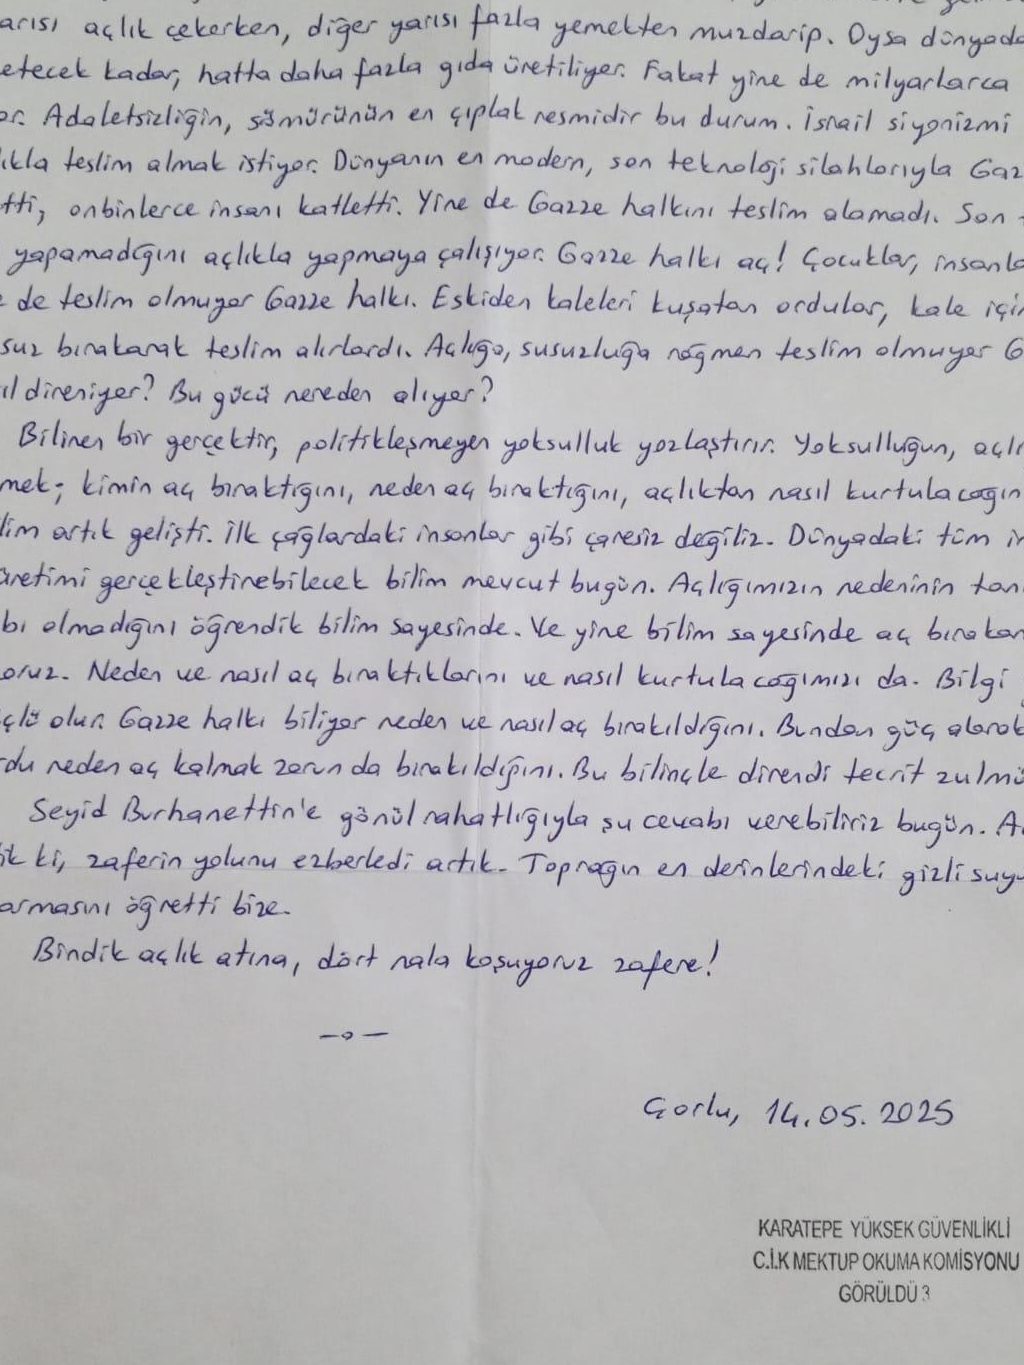 arısı açlık çekerken, diğer yarısı fazla yemekten muzdarip. Oysa dünyada
etecek kadar, hatta daha fazla gıda üretiliyor. Fakat yine de milyarlarca
or. Adaletsizliğin, sömürünün en çıplak resmidir bu durum. İsrail siyonizmi
lıkla teslim almak istiyor. Dünyanın en modern, son teknoloji silahlarıyla Gaz
tti, onbinlerce insanı katletti. Yine de Gazze halkını teslim alamadı. Son
yapamadığını açlıkla yapmaya çalışıyor. Gazze halkı aç! Çocuklar, insanla
e de teslim olmuyor Gazze halkı. Eskiden kaleleri kuşatan ordular, kale için
suz bırakarak teslim alırlardı. Açlığa, susuzluğa rağmen teslim olmuyor G
ıl direniyor? Bu gücü nereden alıyor?
Bilinen bir gerçektir, politikleşmeyen yoksulluk yozlaştırır. Yoksulluğun, açlı
mek; kimin aç bıraktığını, neden aç bıraktığını, açlıktan nasıl kurtulacağın
lim artık gelişti. İlk çağlardaki insanlar gibi çaresiz değiliz. Dünyadaki tüm in
üretimi gerçekleştirebilecek bilim mevcut bugün. Açlığımızın nedeninin tan
bı olmadığını öğrendik bilim sayesinde. Ve yine bilim sayesinde aç bırakan
oruz. Neden ve nasıl aç bıraktıklarını ve nasıl kurtulacağımızı da. Bilgi
çlü olur. Gazze halkı biliyor neden ve nasıl aç bırakıldığını. Bundan güç alarak
rdu neden aç kalmak zorunda bırakıldığını. Bu bilinçle direndi tecrit zulmü
Seyid Burhanettin'e gönül rahatlığıyla şu cevabı verebiliriz bugün. Aç
ik ki, zaferin yolunu ezberledi artık. Toprağın en derinlerindeki gizli suyu
armasını öğretti bize.
Bindik açlık atına, dört nala koşuyoruz zafere!
Çorlu, 14.05.2025
KARATEPE YÜKSEK GÜVENLİKLİ
C.İ.K MEKTUP OKUMA KOMİSYONU
GÖRÜLDÜ 3